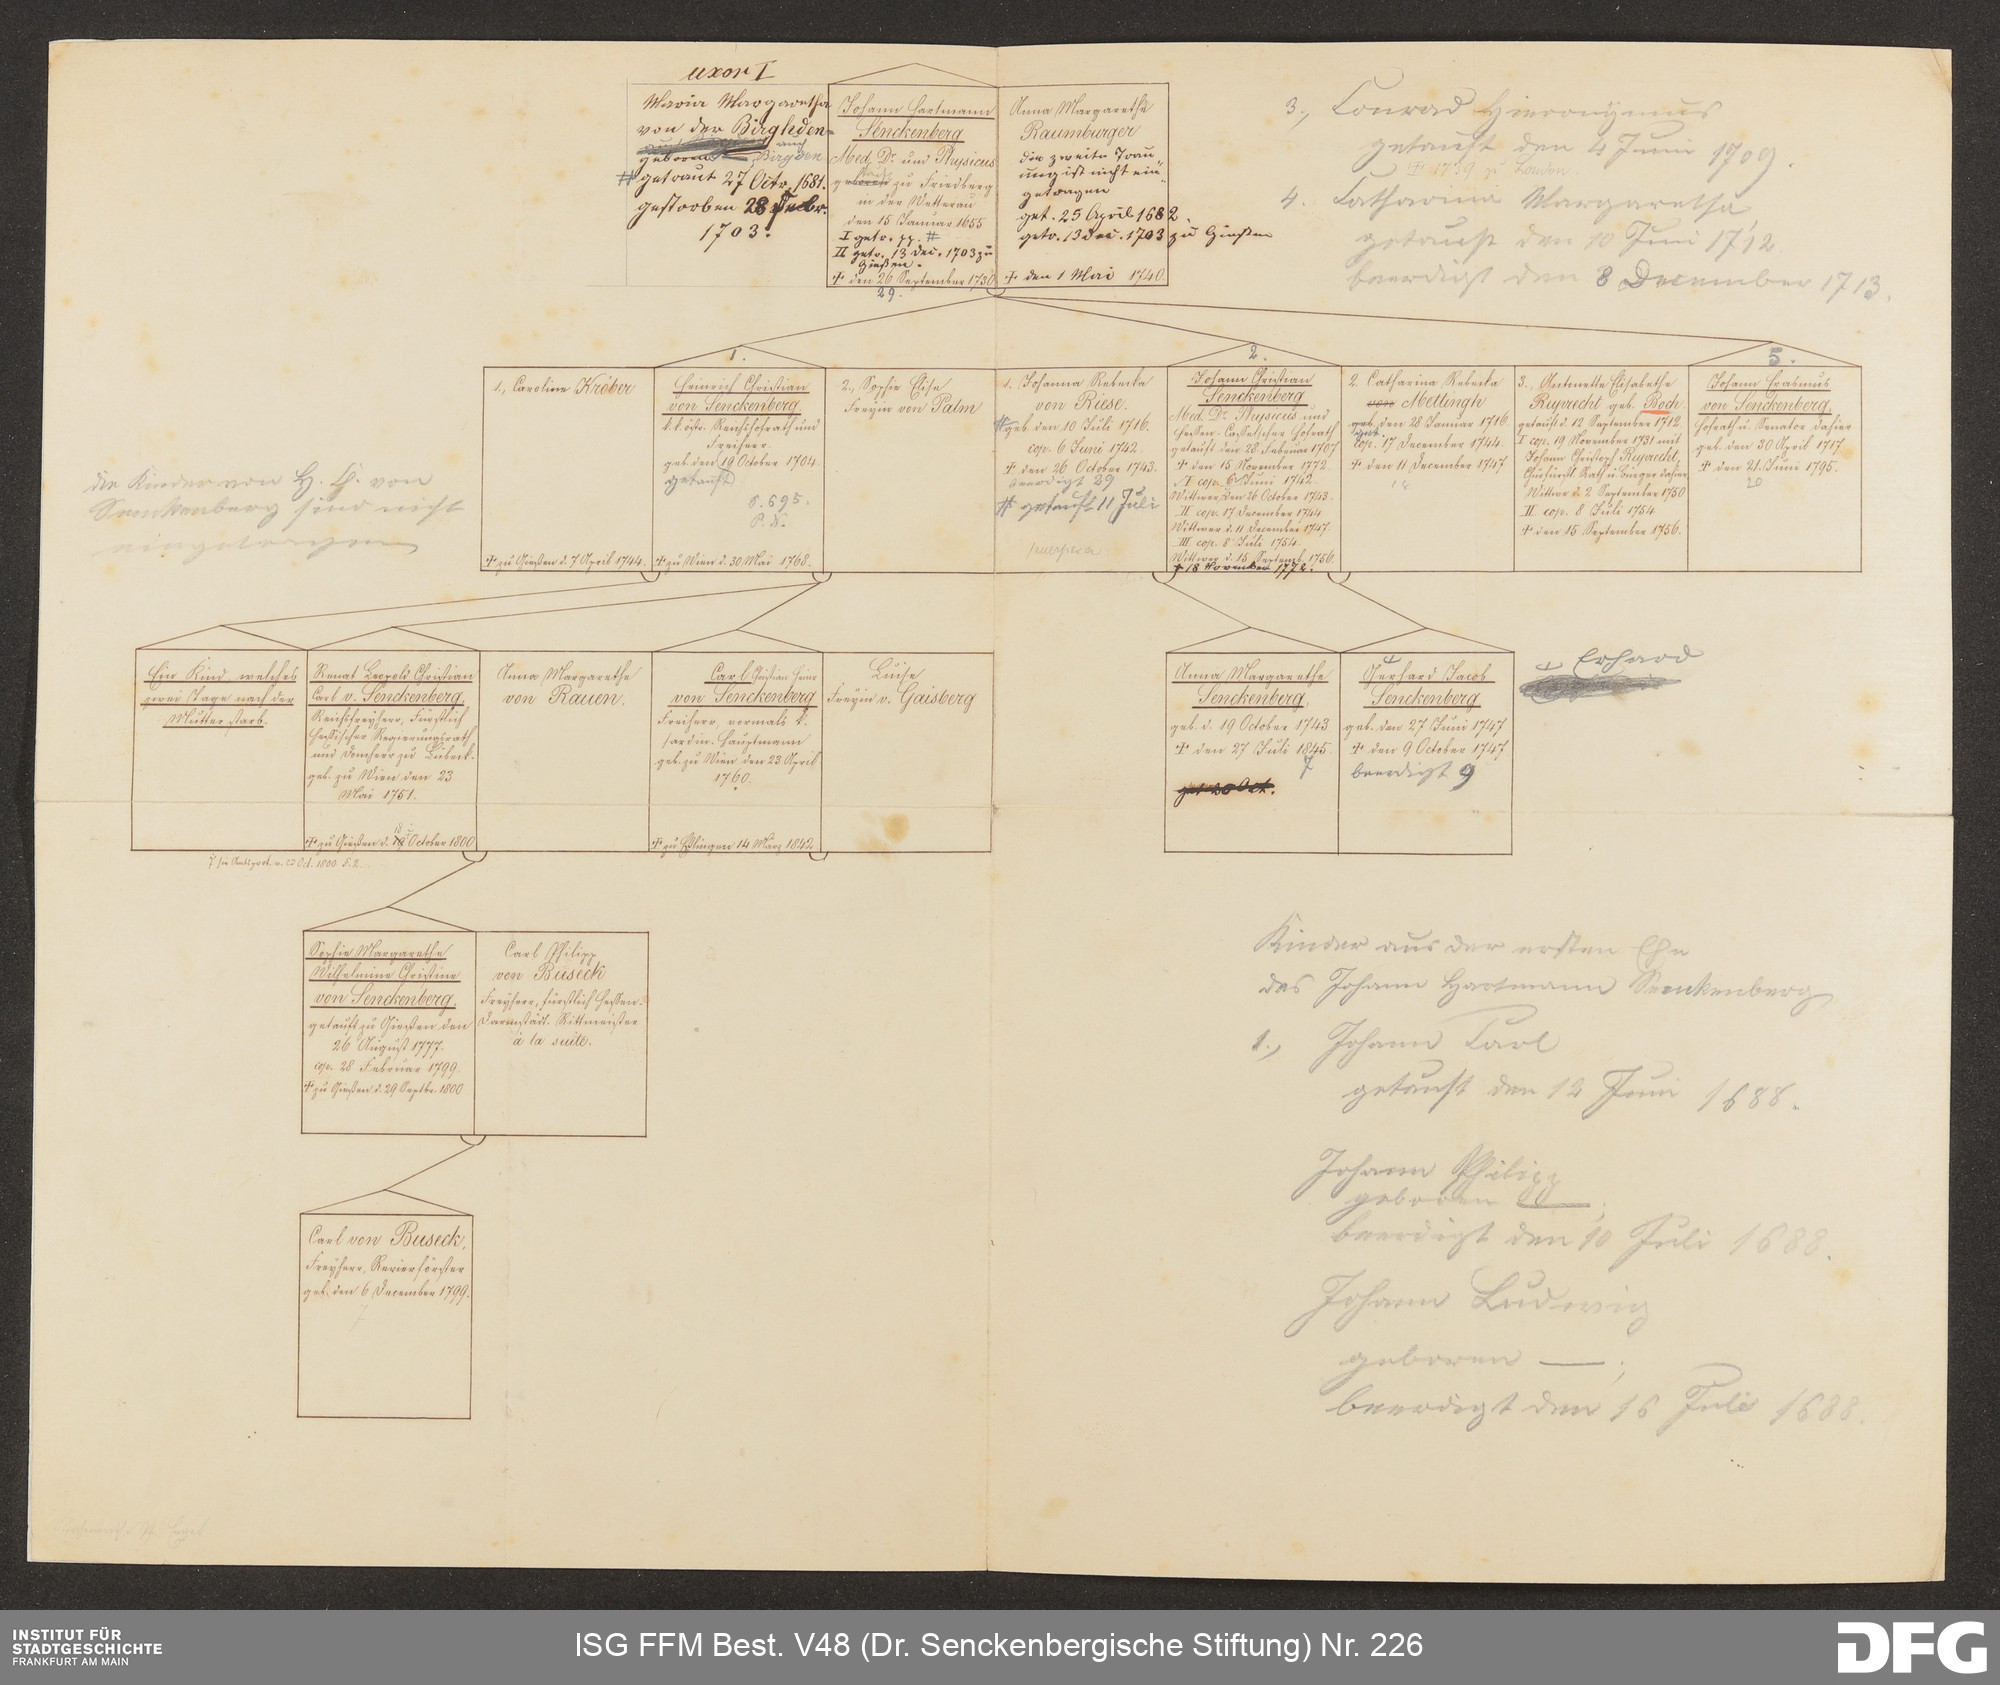 uxor I
Maria Margaretha
von der Birghden
auch
geboren Birgden
# getraut 27 Octr. 1681.
gestorben 28 Febr.
1703.
Johann Hartmann
Senckenberg
Med. Dr. und Physicus
zu Friedberg
in der Wetterau
den 15 Januar 1655
I getr. pp. #
II getr. 13 Dec. 1703 zu
Gießen.
✝ den 26 September 1730
29.
Anna Margarethe
Raumburger
die zweite Trau
ung ist nicht ein„
getragen
get. 25 April 1682.
getr. 13 Dec. 1703 zu Gießen
✝ den 1 Mai 1740.
3., Conrad Hieronymus
getauft den 4 Juni 1709.
✝ 1739 zu London
4. Catharina Margaretha
getauft den 10 Juni 1712
beerdigt den 8 December 1713.
1., Caroline Kröber
✝ zu Gießen d. 7 April 1744.
1.
Heinrich Christian
von Senckenberg
k. k. östr. Reichshofrath und
Freiherr
geb. den 19 October 1704
getauft
S. 695.
P. N.
✝ zu Wien d. 30 Mai 1768.
2., Sophie Elise
Freyin von Palm
1. Johanna Rebecka
von Riese.
# geb. den 10 Juli 1716.
cop. 6 Juni 1742.
✝ den 26 October 1743.
beerdigt 29
# getauft 11 Juli
puerpera
2.
Johann Christian
Senckenberg
Med. Dr. Physicus und
Hessen-Casselscher Hofrath
getauft den 28. Februar 1707
✝ den 15 November 1772.
I cop. 6 Juni 1742.
Wittwer den 26 October 1743.
II cop. 17 December 1744
Wittwer d. 11 December 1747.
III cop. 8 Juli 1754.
Wittwer d. 15 Septemb. 1756.
✝ 18 November 1772.
2. Catharina Rebecka
von Mettingh
geb. den 28 Januar 1716
cop. 17 December 1744.
✝ den 11 December 1747
3., Antonette Elisabethe
Ruprecht geb. Bach
getauft d. 12 September 1712.
I cop. 19 November 1731 mit
Johann Christoph Ruprecht,
Churfürstl. Rath u. Bürger dahier
Wittwe d. 2 September 1750
II cop. 8 Juli 1754
✝ den 15 September 1756.
5.
Johann Erasmus
von Senckenberg,
Hofrath u. Senator dahier
geb. den 30 April 1717
✝ den 21. Juni 1795.
20
die Kinder von H. Ch. von
Senckenberg sind nicht
eingetragen
Ein Kind welches
zwei Tage nach der
Mutter starb.
Renat Leopold Christian
Carl v. Senckenberg,
Reichsfreyherr, Fürstlich
Hessischer Regierungsrath
und Domherr zu Lübeck.
geb. zu Wien den 23
Mai 1751.
18
✝ zu Gießen d. 19 October 1800
Anna Margarethe
von Rauen.
Carl Christian Heinr
von Senckenberg
Freiherr, vormals k.
sardin. Hauptmann
geb. zu Wien den 23 April
1760.
✝ zu Eßlingen 14 März 1842
Luise
Freyin v. Gaisberg
Anna Margarethe
Senckenberg,
geb. d. 19 October 1743
✝ den 27 Juli 1845.
7
get 20 Oct.
Gerhard Jacob
Senckenberg
geb. den 27 Juni 1747
✝ den 9 October 1747
beerdigt 9
Erhard
Sophie Margarethe
Wilhelmine Christine
von Senckenberg,
getauft zu Gießen den
26 August 1777.
cop. 28 Februar 1799
✝ zu Gießen d. 29 Septbr. 1800
Carl Philipp
von Buseck
Freyherr, fürstlich Hessen-
Darmstädt. Rittmeister
à la suite.
Carl von Buseck,
Freyherr, Revierförster
geb. den 6 December 1799.
Kinder aus der ersten Ehe
des Johann Hartmann Senckenberg
1., Johann Carl
getauft den 12 Juni 1688.
Johann Philipp
geboren —;
beerdigt den 10 Juli 1688.
Johann Ludwig
geboren —;
beerdigt den 16 Juli 1688.
INSTITUT FÜR
STADTGESCHICHTE
FRANKFURT AM MAIN
ISG FFM Best. V48 (Dr. Senckenbergische Stiftung) Nr. 226
DFG